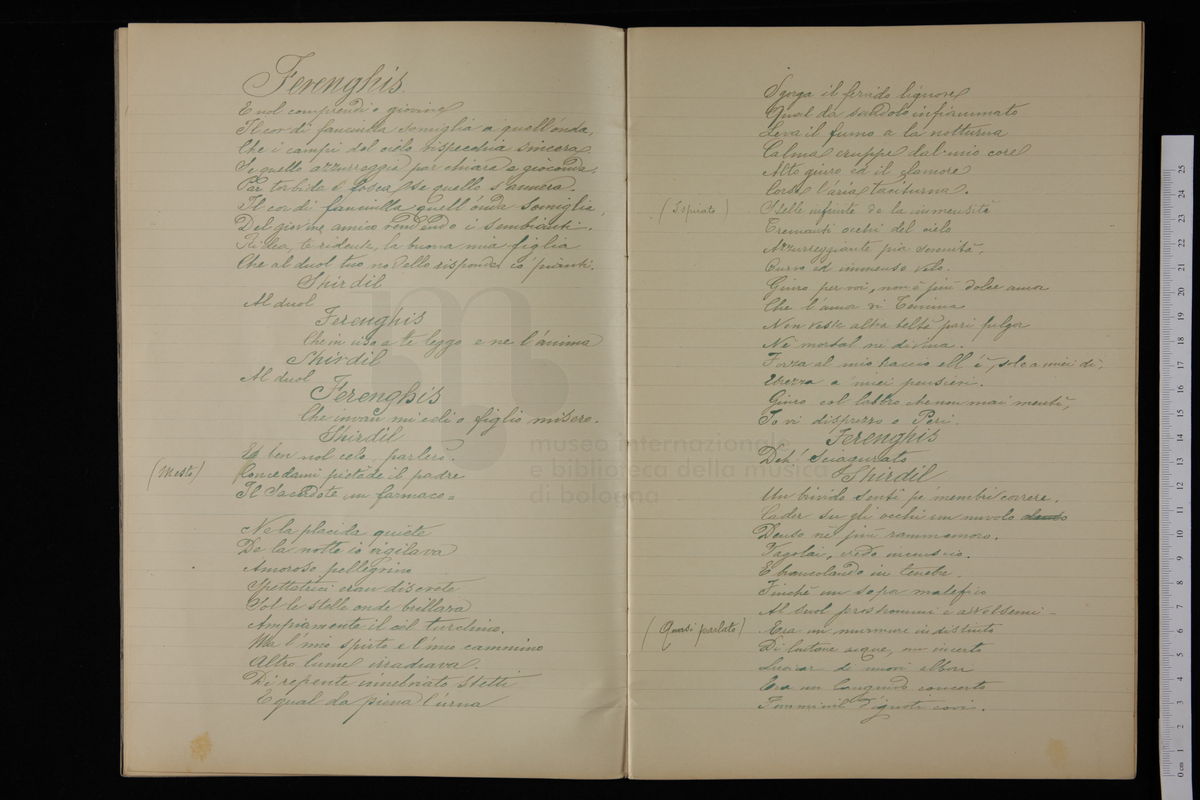 Ferenghis
E nol comprendi o giovine
Il cor di fanciulla somiglia a quell'onda,
Che i campi del cielo rispecchia sincera
Se quello azzurreggia par chiara e gioconda,
Par torbida e fosca se quello s'annera.
Il cor di fanciulla quell'onda somiglia,
Del giovine amico rendendo i sembianti.
Ridea, te ridente, la buona mia figlia
Che al duol tuo novello risponde co' pianti.
Shirdil
Al duol
Ferenghis
Che in viso a te leggo e ne l'anima
Shirdil
Al duol
Ferenghis
Che invan mi celi o figlio misero.
Shirdil
(Mesto)
Eb ben nol celo, parlerò.
Concedami pietade il padre
Il Sacerdote un farmaco =
Ne la placida quiete
De la notte io vigilava
Amoroso pellegrino
Spettatrici eran discrete
Sol le stelle onde brillava
Ampiamente il ciel turchino.
Ma l'mio spirto e l'mio cammino
Altro lume irradiava.
Di repente innebriato stetti
E qual da piena l'urna
Sgorga il fervido liquore
Qual da sandalo infiammato
Leva il fumo a la notturna
Calma eruppe dal mio core
Alto giuro ed il clamore
Corse l'aria taciturna.
(Ispirato)
Stelle infinite de la immensità
Tremanti occhi del cielo
Azzurreggiante pia serenità,
Curvo ed immenso velo.
Giuro per voi, non è più dolce amor
Che l'amor di
Non veste altra beltà pari fulgor
Nè mortal nè divina.
Forza al mio braccio ell'è, sole a miei dì,
Ebrezza a miei pensieri.
Giuro col labbro che non mai mentì,
Io vi disprezzo o Peri.
Ferenghis
Deh! Sciagurato
Shirdil
Un brivido sentì pe' membri correre.
Cader su gli occhi un nuvolo
Denso nè più rammemoro.
Vagolai, credo inconscio.
E brancolando in tenebre
Finchè un sopor malefico
Al suol prostrommi e avvolsemi -
(Quasi parlato)
Era un murmure indistinto
Di lontane acque, un incerto
Luccicar di
Era un languido concerto
Femminil d'ignoti cori.
museo internazionale
e biblioteca della musica
di bologna